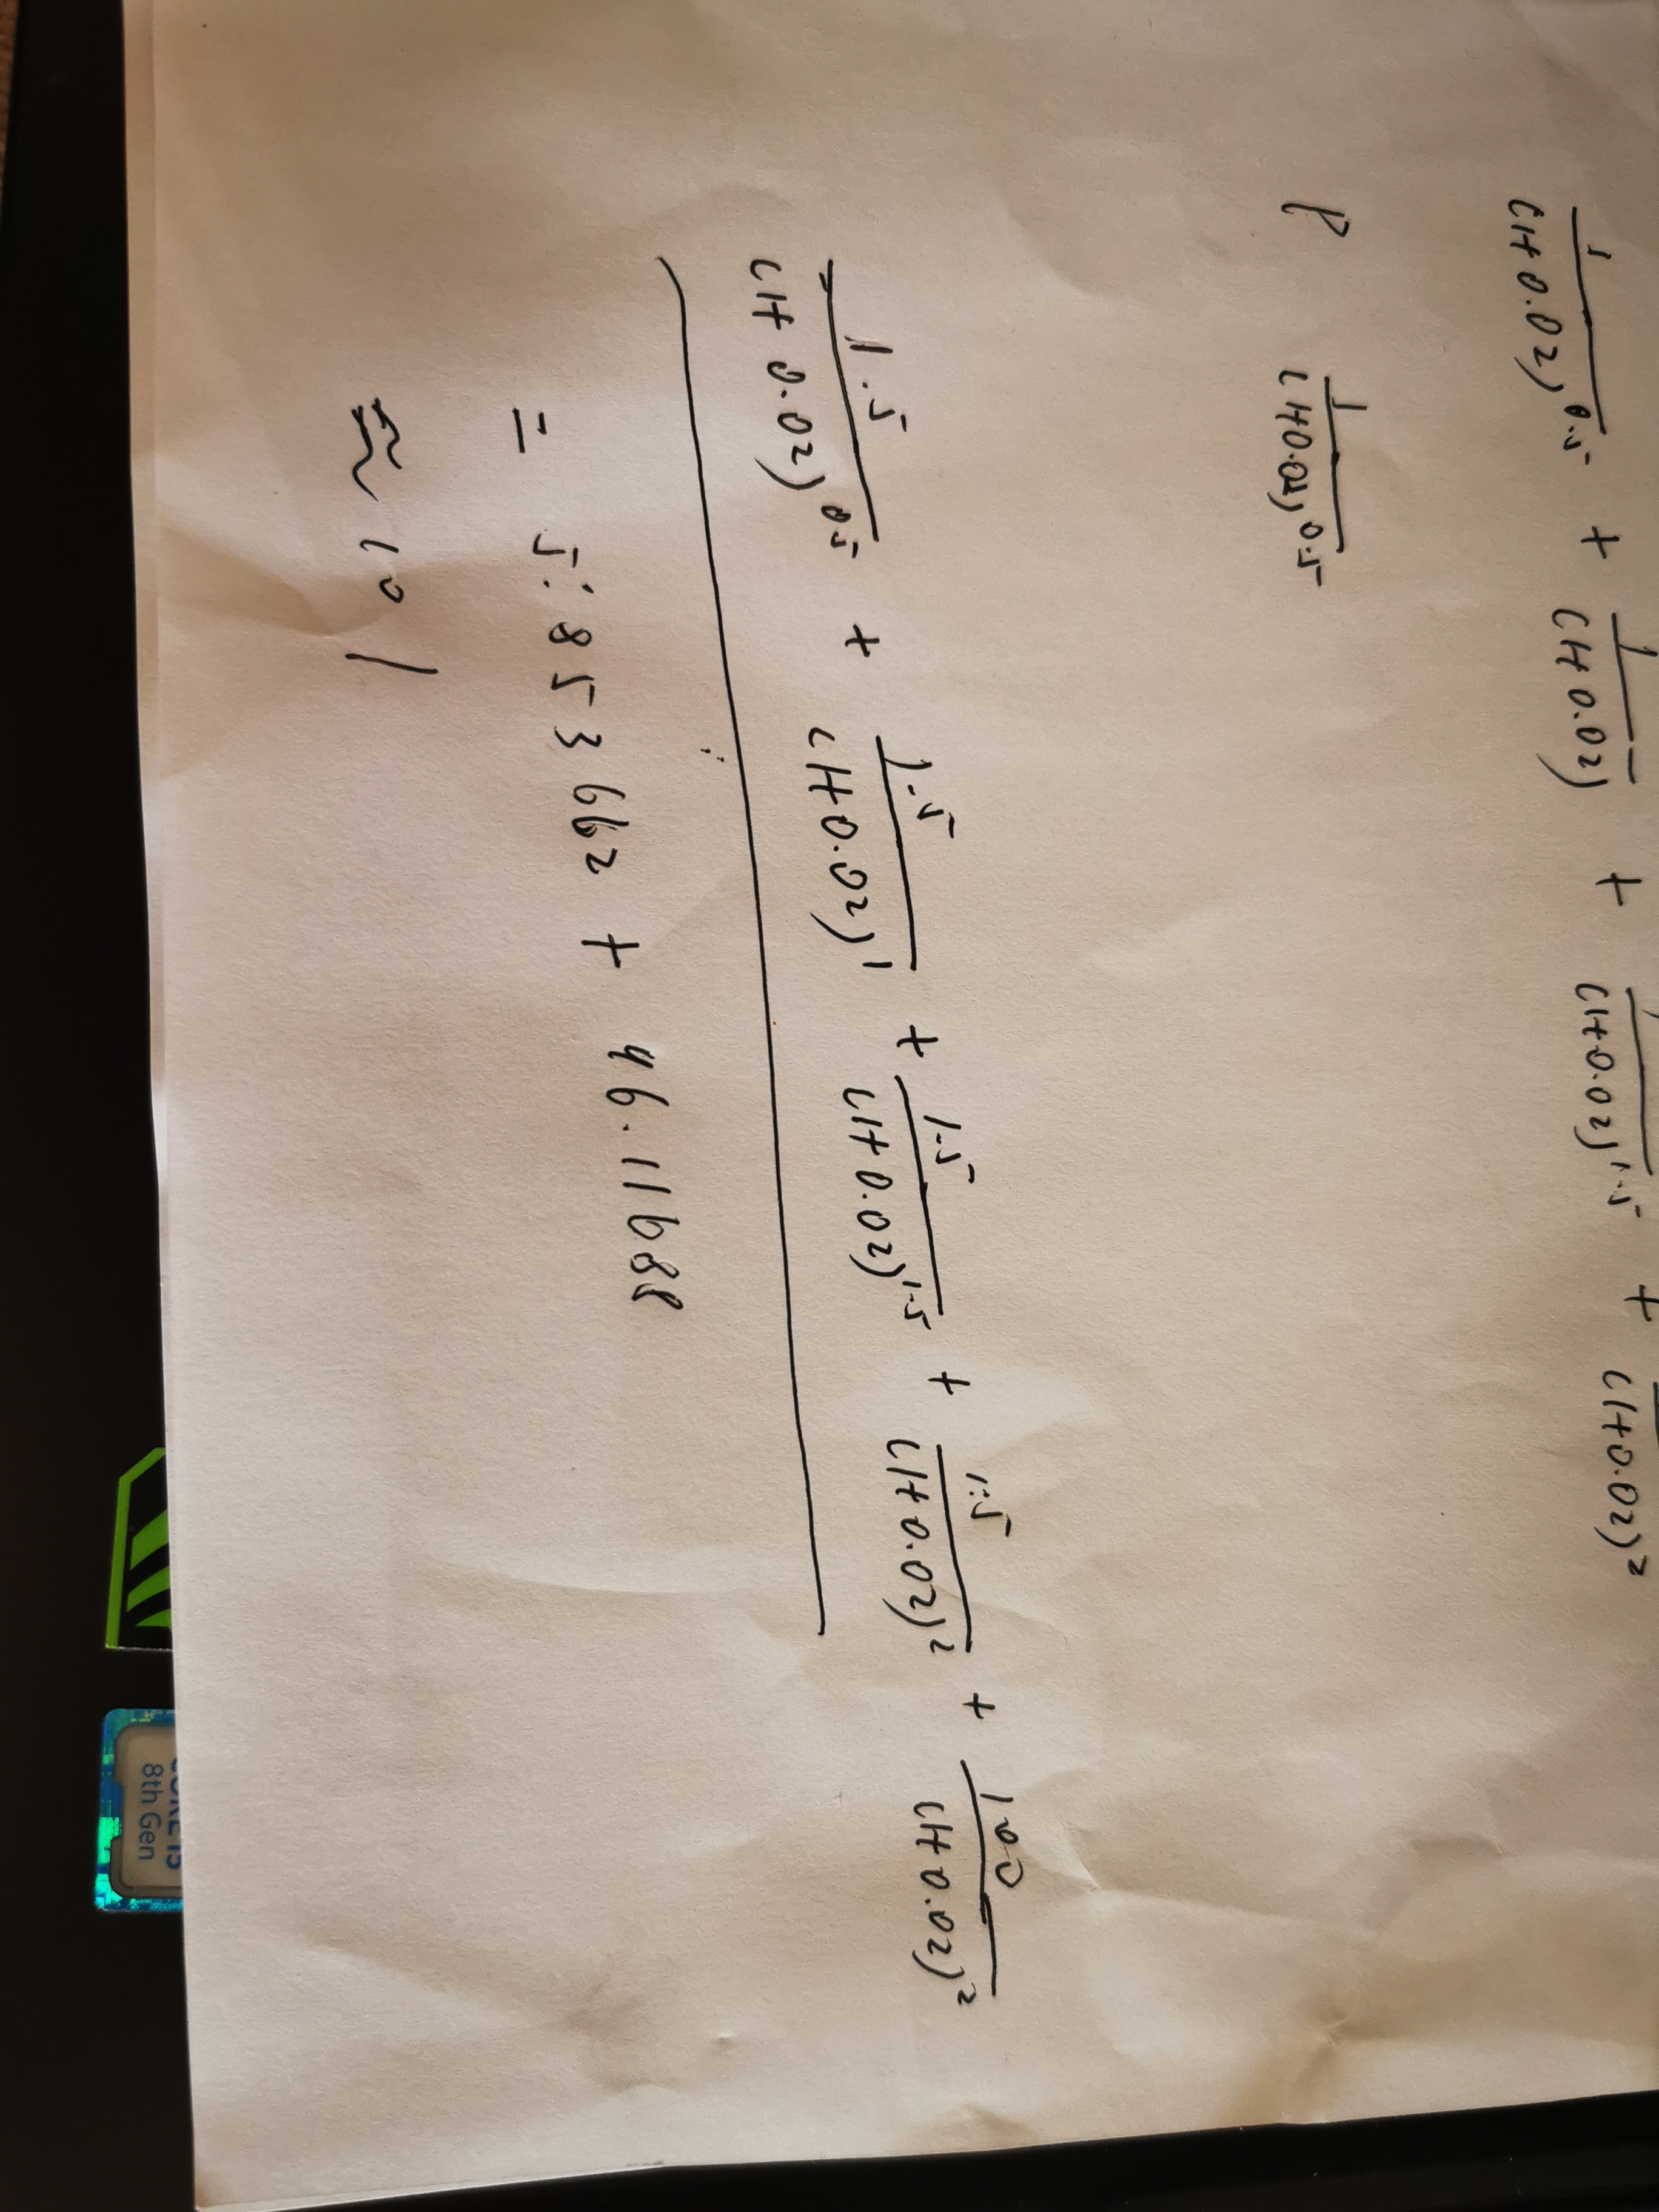 1/(1+0.02)^0.5 + 1/(1+0.02) + 1/(1+0.02)^1.5 + /(1+0.02)^2
P 1/(1+0.02)^0.5
1.5/(1+0.02)^0.5 + 1.5/(1+0.02)^1 + 1.5/(1+0.02)^1.5 + 1.5/(1+0.02)^2 + 100/(1+0.02)^2
= 5.853662 + 96.11688
≈ 101
8th Gen